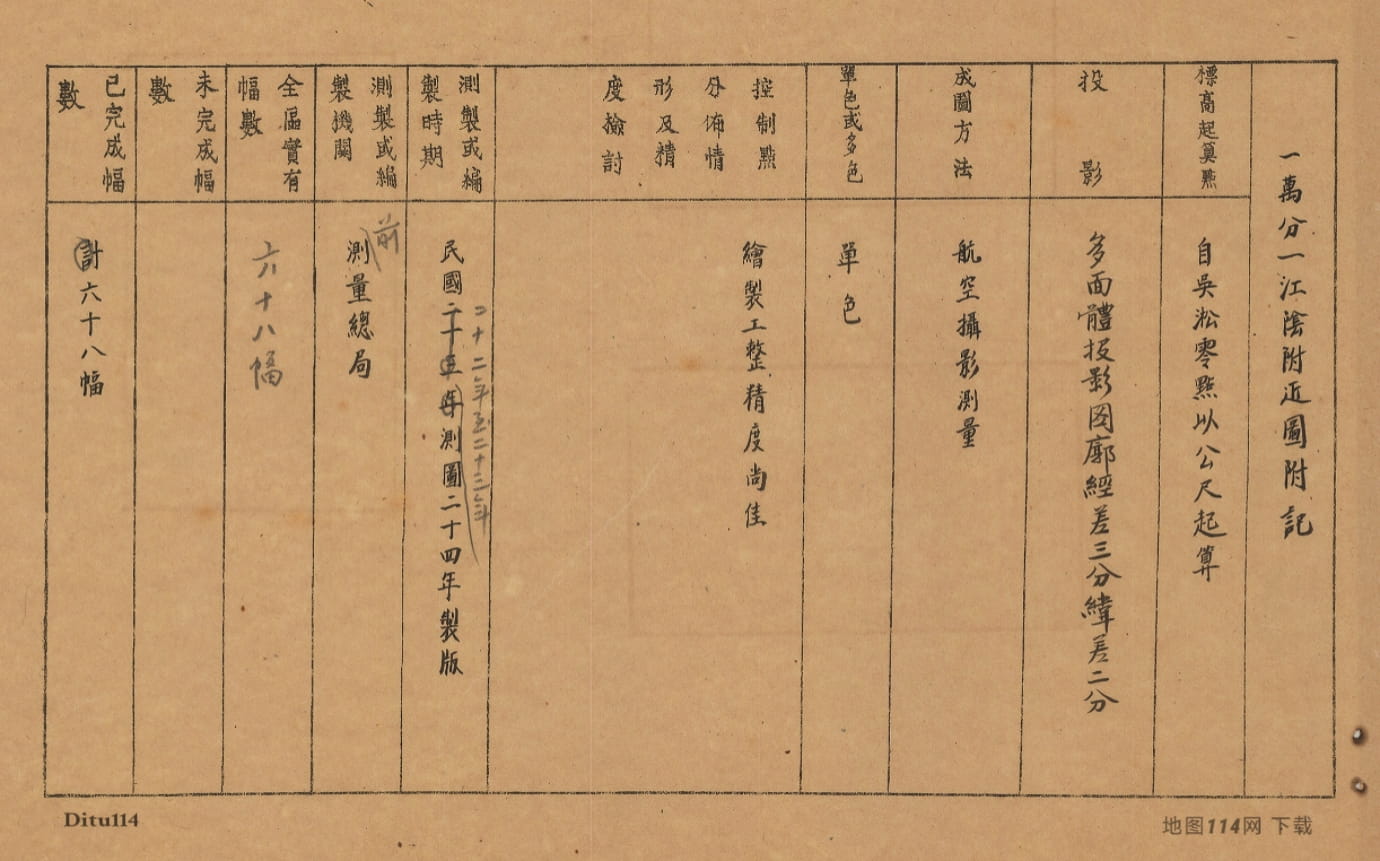 一萬分一江陰附近圖附記
標高起算點
自吳淞零點以公尺起算
投影
多面體投影图廓經差三分緯差二分
成圖方法
航空攝影測量
單色或多色
單色
控制點
分佈情
形及精
度檢討
繪製工整精度尚佳
測製或編
製時期
二十二年至二十三年
民國二十五年測圖二十四年製版
測製或編
製機關
前
測量總局
全區實有
幅數
六十八幅
未完成幅
數
已完成幅
數
計六十八幅
Ditu114
地图114网 下载